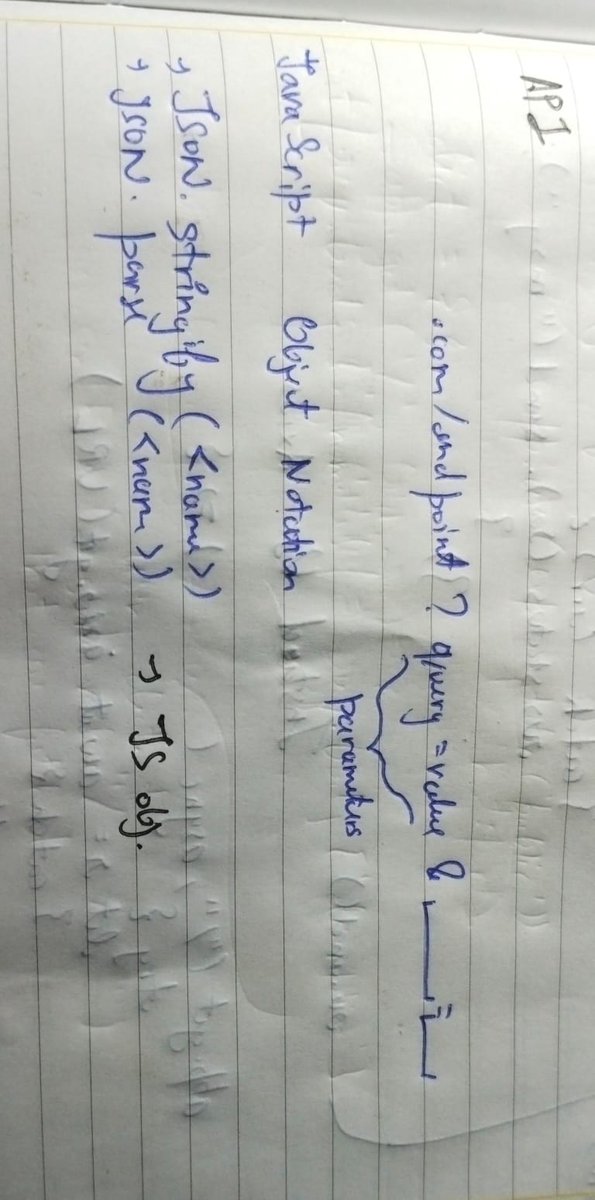 API
.com/endpoint ? query = value & ___ = ___
parameters
JavaScript Object Notation
→ JSON. stringify (<name>)
→ JSON. parse (<name>) → JS obj.